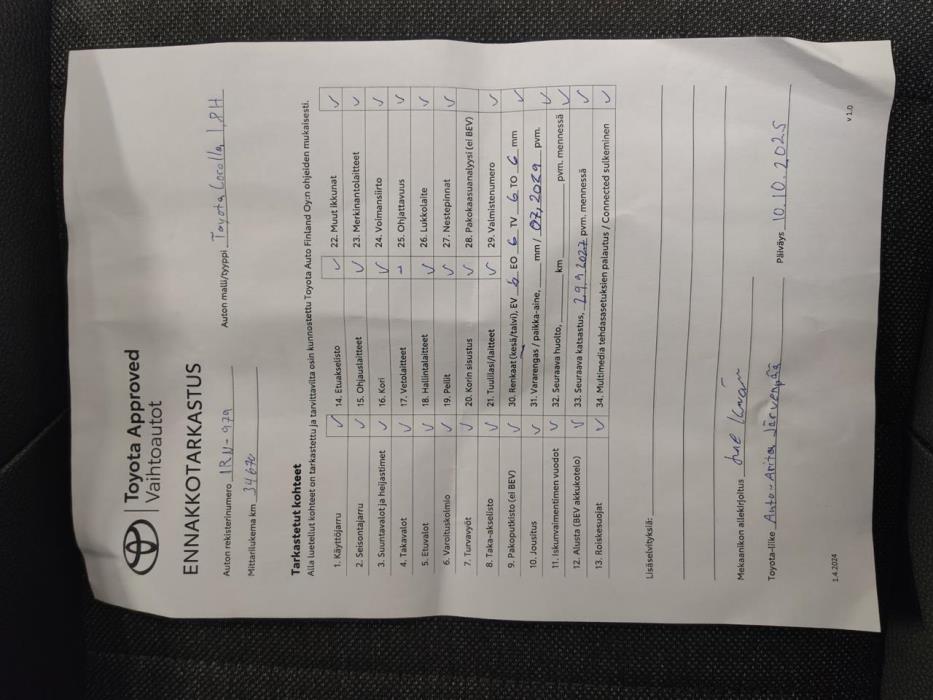 Toyota Approved
Vaihtoautot
ENNAKKOTARKASTUS
Auton rekisterinumero IRN-979 Auton malli/tyyppi Toyota Corolla 1,8H
Mittarilukema km 34670
Tarkastetut kohteet
Alla luetellut kohteet on tarkastettu ja tarvittavilta osin kunnostettu Toyota Auto Finland Oy:n ohjeiden mukaisesti.
1. Käyttöjarru ✓ 14. Etuakselisto ✓ 22. Muut ikkunat ✓
2. Seisontajarru ✓ 15. Ohjauslaitteet ✓ 23. Merkinantolaitteet ✓
3. Suuntavalot ja heijastimet ✓ 16. Kori ✓ 24. Voimansiirto ✓
4. Takavalot ✓ 17. Vetolaitteet - 25. Ohjattavuus ✓
5. Etuvalot ✓ 18. Hallintalaitteet ✓ 26. Lukkolaite ✓
6. Varoituskolmio ✓ 19. Peilit ✓ 27. Nestepinnat ✓
7. Turvavyöt ✓ 20. Korin sisustus ✓ 28. Pakokaasuanalyysi (ei BEV)
8. Taka-akselisto ✓ 21. Tuulilasi/laitteet ✓ 29. Valmistenumero ✓
9. Pakoputkisto (ei BEV) ✓ 30. Renkaat (kesä/talvi), EV 6 EO 6 TV 6 TO 6 mm ✓
10. Jousitus ✓ 31. Vararengas / paikka-aine, mm / 07,2029 pvm. ✓
11. Iskunvaimentimen vuodot ✓ 32. Seuraava huolto, km pvm. mennessä ✓
12. Alusta (BEV akkukotelo) ✓ 33. Seuraava katsastus, 29.9.2027 pvm. mennessä ✓
13. Roiskesuojat ✓ 34. Multimedia tehdasasetuksien palautus / Connected sulkeminen ✓
Lisäselvityksiä:
Mekaanikon allekirjoitus
Toyota-liike Auto-Arita Järvenpää Päiväys 10.10.2025
1.4.2024 v 1.0